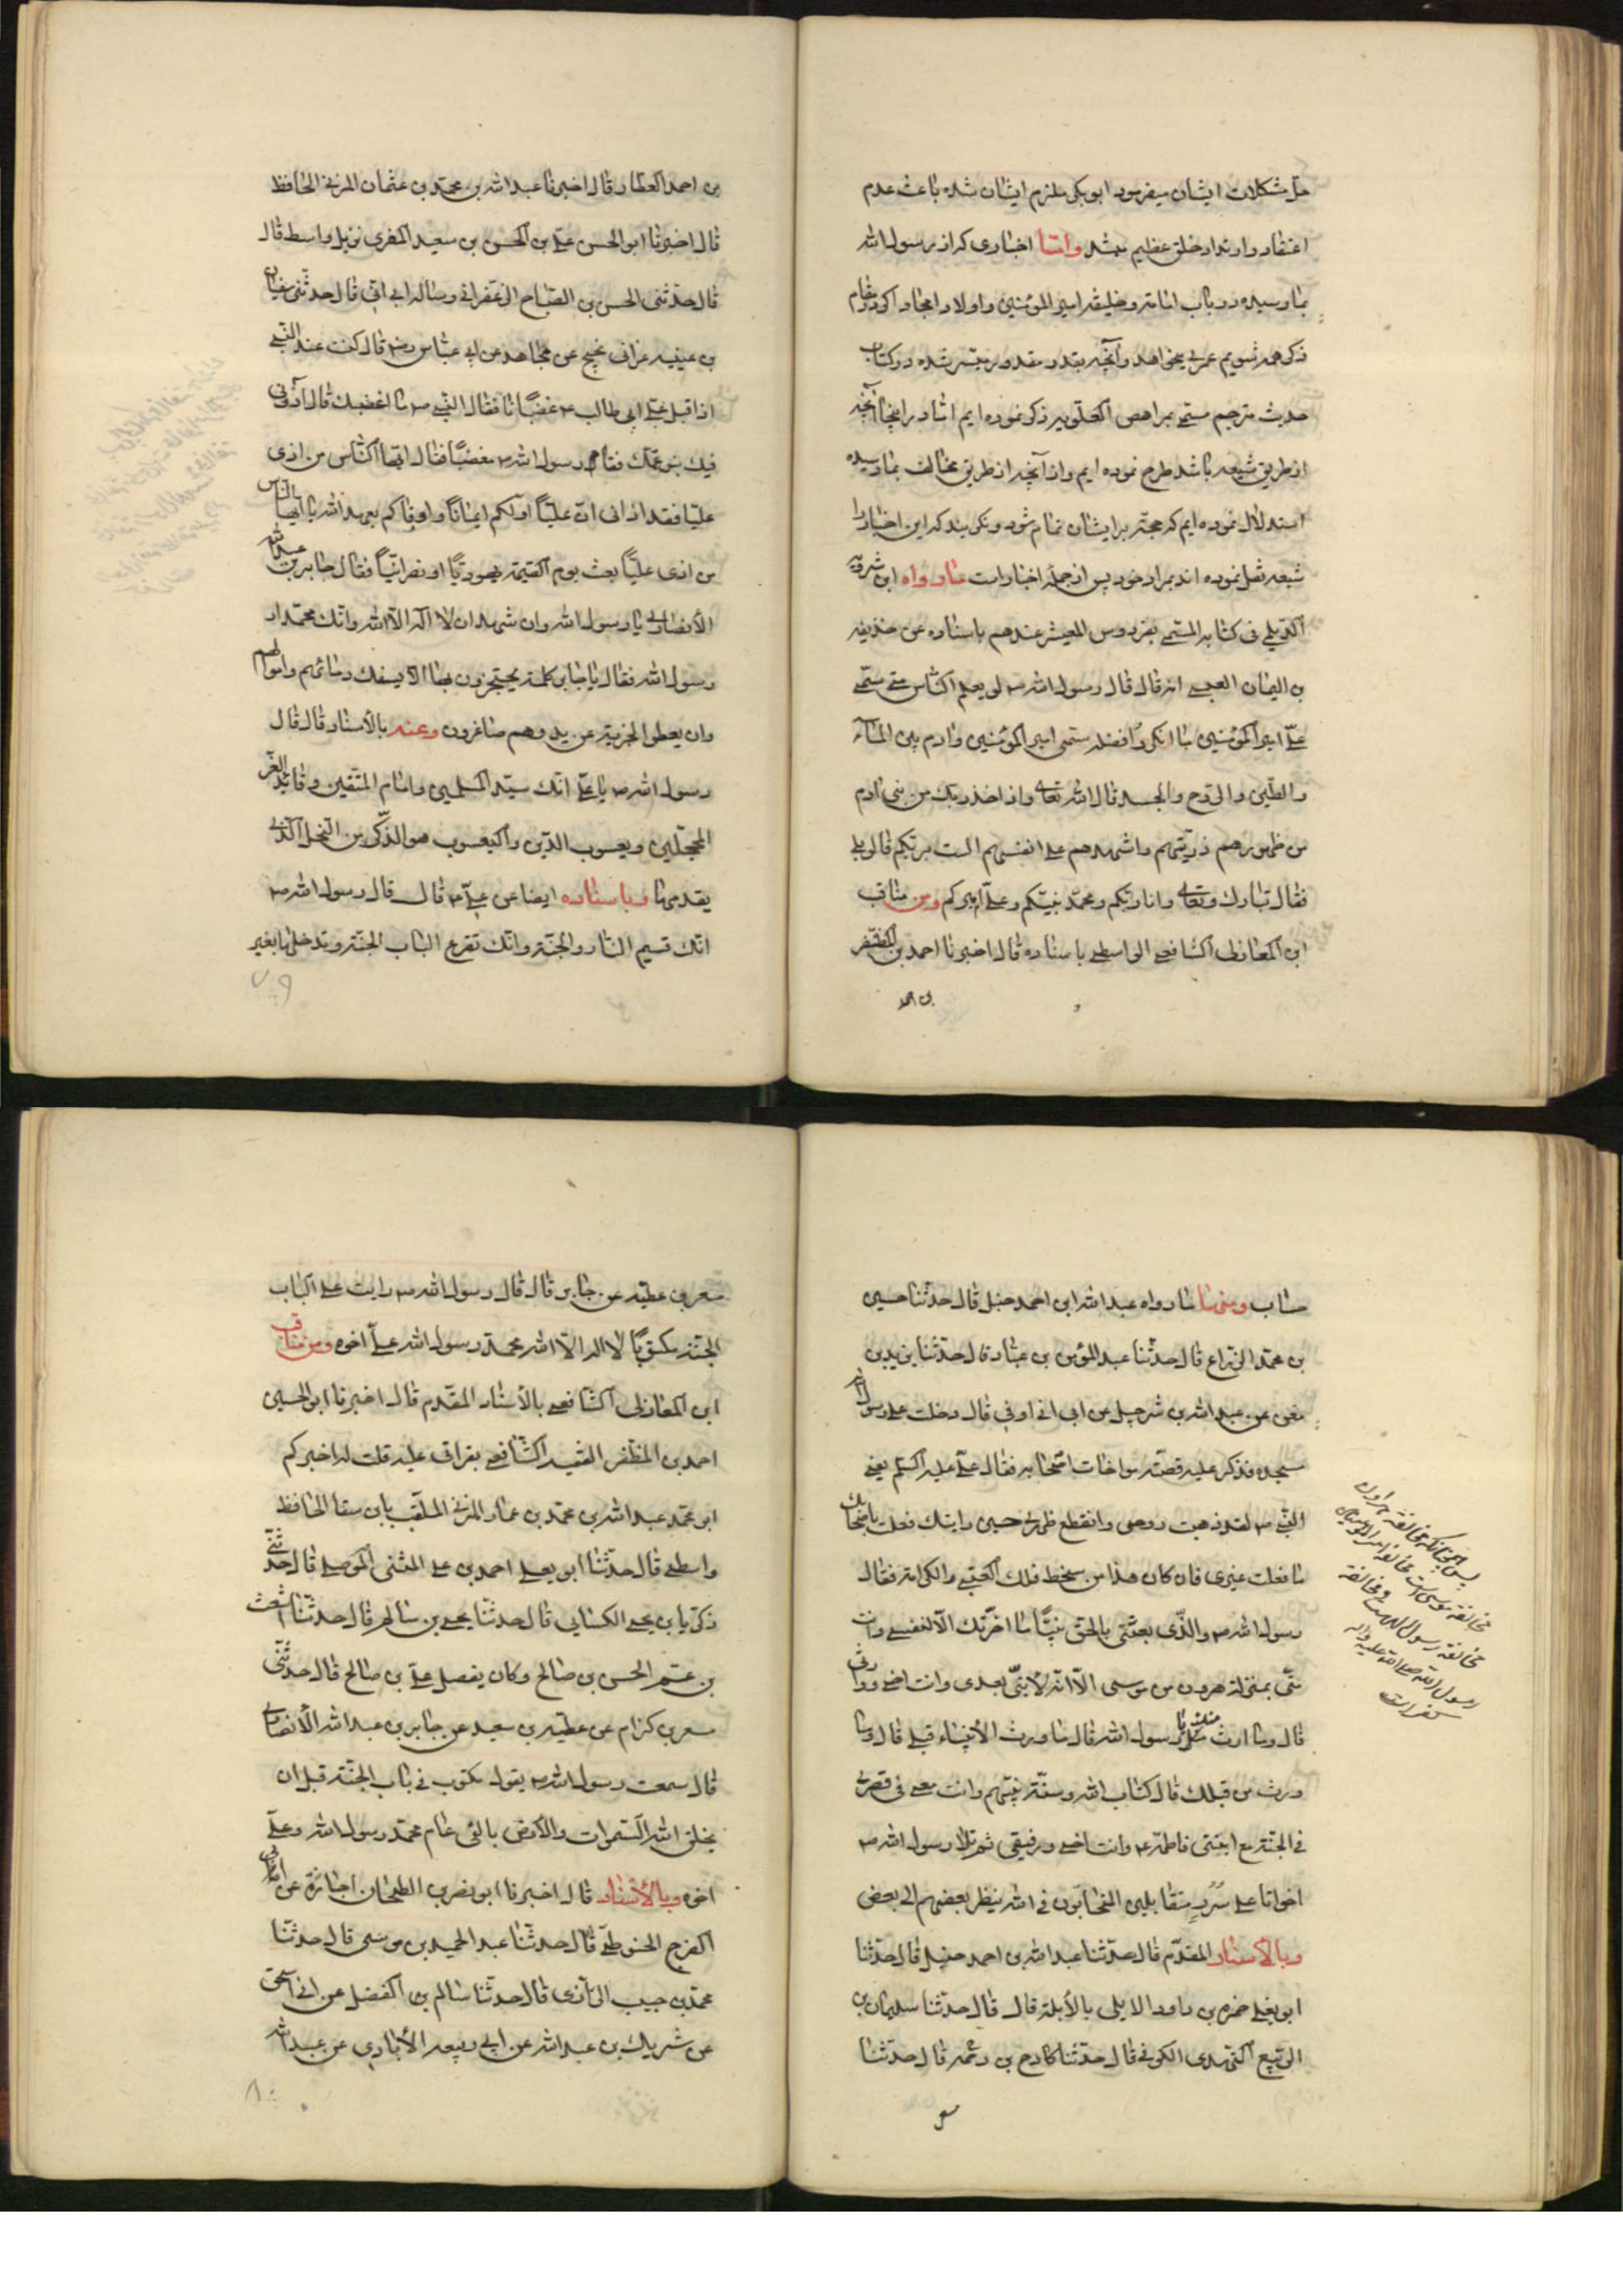 حل مشکلات ایشان میفرمود ابوبکر ملزم ایشان شده باعث عدم
اعتقاد و ارتداد خلق عظیم میشد و امّا اخباری که از رسول الله
بما رسیده در باب امامة و خلیفه امیر المؤمنین و اولاد امجاد او که تمام
ذکر همه شویم عمری میخواهد و آنچه بقدر مقدور میسّر شده در کتاب
حدیث مترجم مسمّی ذکر نموده ایم امّا در اینجا آنچه
از طریق شیعه باشد طرح نموده ایم و از آنچه از طریق مخالف بما رسیده
استدلال نموده ایم که حجّة بر ایشان تمام شود و نگویند که این اخبار را
شیعه نقل نموده اند بمراد خود پس از جمله اخبار است ما رواه ابن شرویه
الدّیلمی فی کتابه المسمّی بفردوس عندهم باسناده عن حذیفه
بن الیمان قال قال رسول الله ص لو یعلم النّاس متی سمّی
علیّ امیر المؤمنین ما انکروا فضله سمّی امیر المؤمنین و ادم بین المآء
و الطّین و الرّوح و الجسد قال الله تعالی و اذ اخذ ربّک من بنی ادم
من ظهورهم ذریّتهم و اشهدهم علی انفسهم الست بربّکم قالو بلی
فقال تبارک و تعالی و انا ربّکم و محمّد نبیّکم و علیّ امیرکم و من مناقب
ابن المغازلی الشافعی الواسطی باسناده قال اخبرنا احمد بن المظفّر
بن احمد
بن احمد العطار قال اخبرنا عبدالله بن محمّد بن عثمان المزنی الحافظ
قال اخبرنا ابو الحسن علیّ بن الحسن بن سعید المقری نزیل واسط قال
قال حدّثنی الحسن بن الصّباح الزعفرانی قال حدّثنی سفیان
بن عیینه نجیح عن مجاهد عن ابن عبّاس رض قال کنت عند النّبی
اذ اقبل علیّ ابی طالب ع غضبًا نا فقال النّبی ص ما اغضبک قال آذونی
فیک بنو عمّک فقام رسول الله ص مغضبًا فقال ایّها النّاس من اذی
علیًا فقد اذانی انّ علیًّا اوّلکم ایمانًا و اوفاکم بعهد الله یا ایّها النّاس
من اذی علیًّا بعث یوم القیمة یهودیًّا او نصرانیًّا فقال جابر بن عبدالله
الأنصاری یا رسول الله و ان شهد ان لا اله الّا الله و انّک محمّد ا
رسول الله فقال یا جابر کلمة یحتجزون بها الّا یسفک دمائهم و اموالهم
و ان یعطوا الجزیة عن ید و هم صاغرون و عنه بالأسناد قال قال
رسول الله ص یا علیّ انّک سیّد المسلمین و امام المتّقین و قائد الغرّ
المحجّلین و یعسوب الدّین و الیعسوب هو الذّکر من النّحل الّذی
یقدمها و باسناده ایضا عن علیّ ع قال قال رسول الله ص
انّک قسیم النّار و الجنّة و انّک تقرع الباب الجنّة و تدخلها بغیر
حساب و منها ما رواه عبدالله ابن احمد حنبل قال حدّثنا حسین
بن محمّد الزرّاع قال حدّثنا عبد المؤمن بن عبّاد قال حدّثنا یزید بن
معن عن عبدالله بن شرحبیل عن ابی اوفی قال دخلت علی رسول الله
مسجده فذکر علیه قصّة مواخات اصحابه فقال علیّ علیه السّلم یعنی
النّبی ص لقد ذهبت روحی و انقطع ظهری حین رایتک فعلت باصحابک
ما فعلت غیری فان کان هذا من سخط فلک العتبی و الکرامة فقال
رسول الله ص و الّذی بعثنی بالحق نبیًّا ما اخّرتک الّا لنفسی و انت
منّی بمنزلة هرون من موسی الّا انّه لا نبیّ بعدی و انت اخی و وارثی
قال و ما ارث منک یا رسول الله قال ما ورث الأنبیاء قبلی قال و ما
ورث من قبلک قال کتاب الله و سنّة نبیّهم و انت معی فی قصری
فی الجنّة مع ابنتی فاطمة ع و انت اخی و رفیقی ثم تلا رسول الله ص
اخوانا علی سُرُرٍ متقابلین المتحابّون فی الله ینظر بعضهم الی بعض
و بالأسناد المقدّم قال حدّثنا عبدالله بن احمد حنبل قال حدّثنا
ابو یعلی حمزه بن داود الابلی بالأبلة قال قال حدّثنا سلیمان بن
الرّبیع النّهدی الکوفی قال حدّثنا کادح بن رحمه قال حدّثنا
مسعر
مخالفة رسول الله است و مخالفة
رسول الله صلی الله علیه و اله
کفر است
مسعر بن عطیّه عن جابر قال قال رسول الله ص رایت علی الباب
الجنّة مکتوبًا لا اله الّا الله محمّد رسول الله علیّ اخوه و من مناقب
ابن المغازلی الشافعی بالأسناد المقدّم قال اخبرنا ابو الحسین
احمد بن المظفّر الفقیه الشّافعی بقرائی علیه قلت له اخبرکم
ابو محمّد عبدالله بن محمّد بن عمار المزنی الملقّب بابن سقا الحافظ
واسطی قال حدّثنا ابو یعلی احمد بن علی المثنی الموصلی قال حدّثنی
ذکریّا بن یحیی الکسایی قال حدّثنا یحیی بن سالم قال حدّثنا اشعث
بن عمّ الحسن بن صالح و کان یفضل علیّ بن صالح قال حدّثنی
مسعر بن کزام عن عطیّه بن سعید عن جابر بن عبدالله الأنصاری
قال سمعت رسول الله ص یقول مکتوب فی باب الجنّة قبل ان
یخلق الله السّموات و الأرض بالفی عام محمّد رسول الله و علیّ
اخوه و بالأسناد قال اخبرنا ابو نصر بن الطحان اجازة عن ابی
الفرج الحنوطیّ قال حدّثنا عبد الحمید بن موسی قال حدّثنا
محمّد بن حبیب قال حدّثنا سالم بن الفضل عن
عن شریک بن عبدالله عن ابی ربیعه الأیادی عن عبدالله